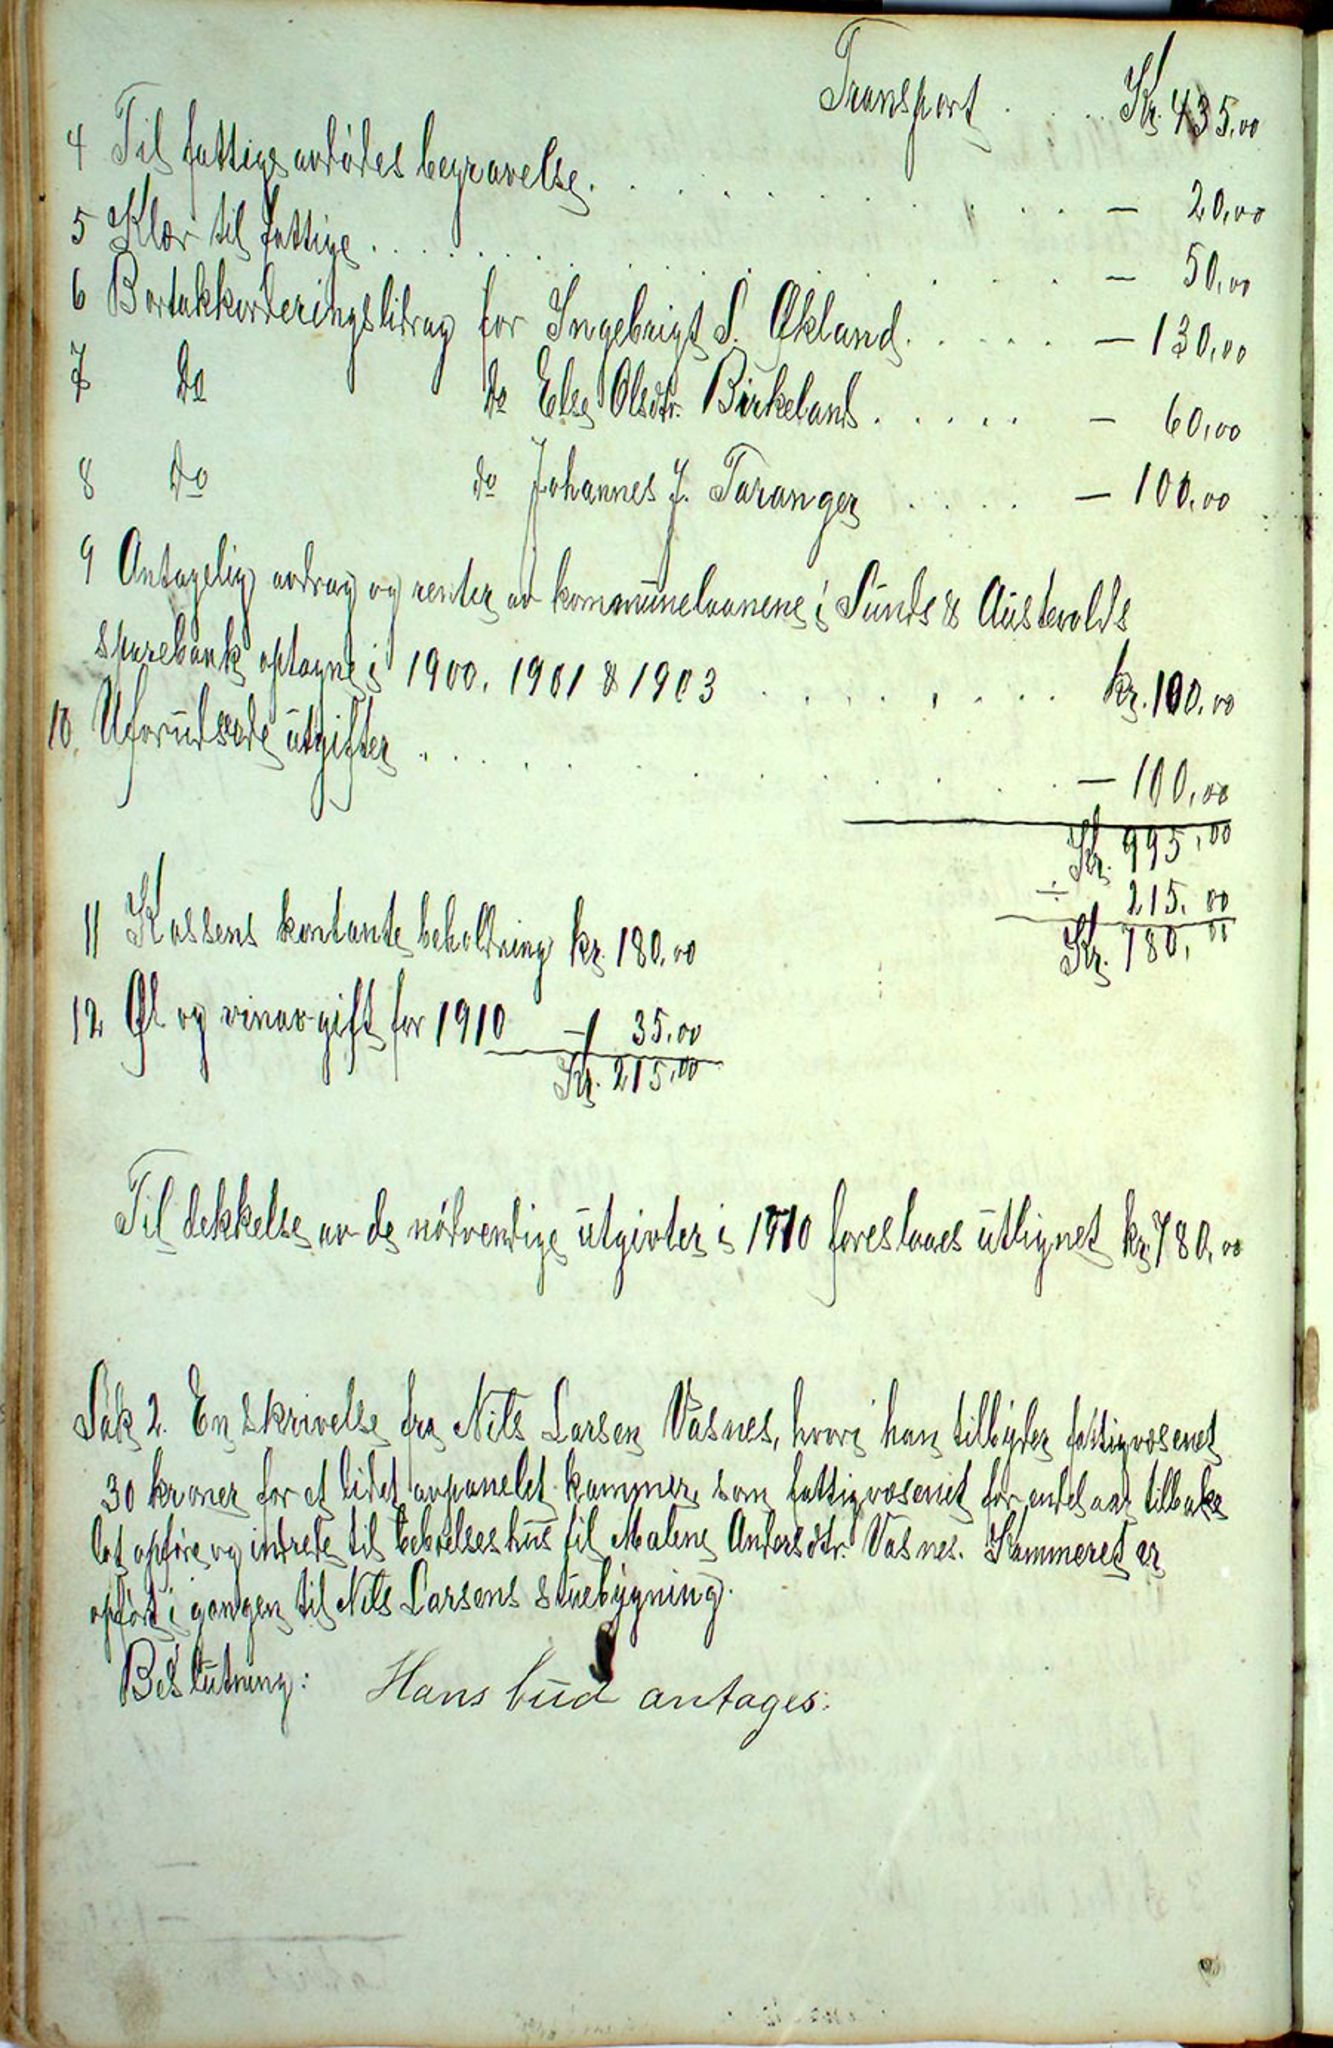 Transport . . . . Kr. 435,00
4 Til fattige avdødes begravelse . . . . . . . . — 20,00
5 Klær til fattige . . . . . . . . . . — 50,00
6 Bortakkorderingsbidrag for Ingebrigt S. Økland . . . . . — 130,00
7 do do Else Olsdtr. Birkeland . . . . . — 60,00
8 do do Johannes J. Taranger . . . . — 100,00
9 Antagelig avdrag og renter av kommunelaanene i Sunds & Austevolds
sparebank optagne i 1900, 1901 & 1903 . . . . . . . kr. 100,00
10. Uforudsede utgifter . . . . . . . . . — 100,00
Kr. 995,00
÷ 215,00
Kr. 780,00
11 Kassens kontante beholdning kr. 180,00
12 Øl og vinavgift for 1910 — 35,00
Kr. 215,00
Til dekkelse av de nødvendige utgivter i 1910 foreslaaes utlignet kr. 780,00
Sak 2. En skrivelse fra Nils Larsen Vasnes, hvori han tilbyder fattigvæsenet
30 kroner for et lidet avpanelet kammer, som fattigvæsenet for endel aar tilbake
lot opføre og indrede til beboelseshus til Malene Andersdtr. Vasnes. Kammeret er
opført i gangen til Nils Larsens stuebygning.
Beslutning: Hans bud antages.